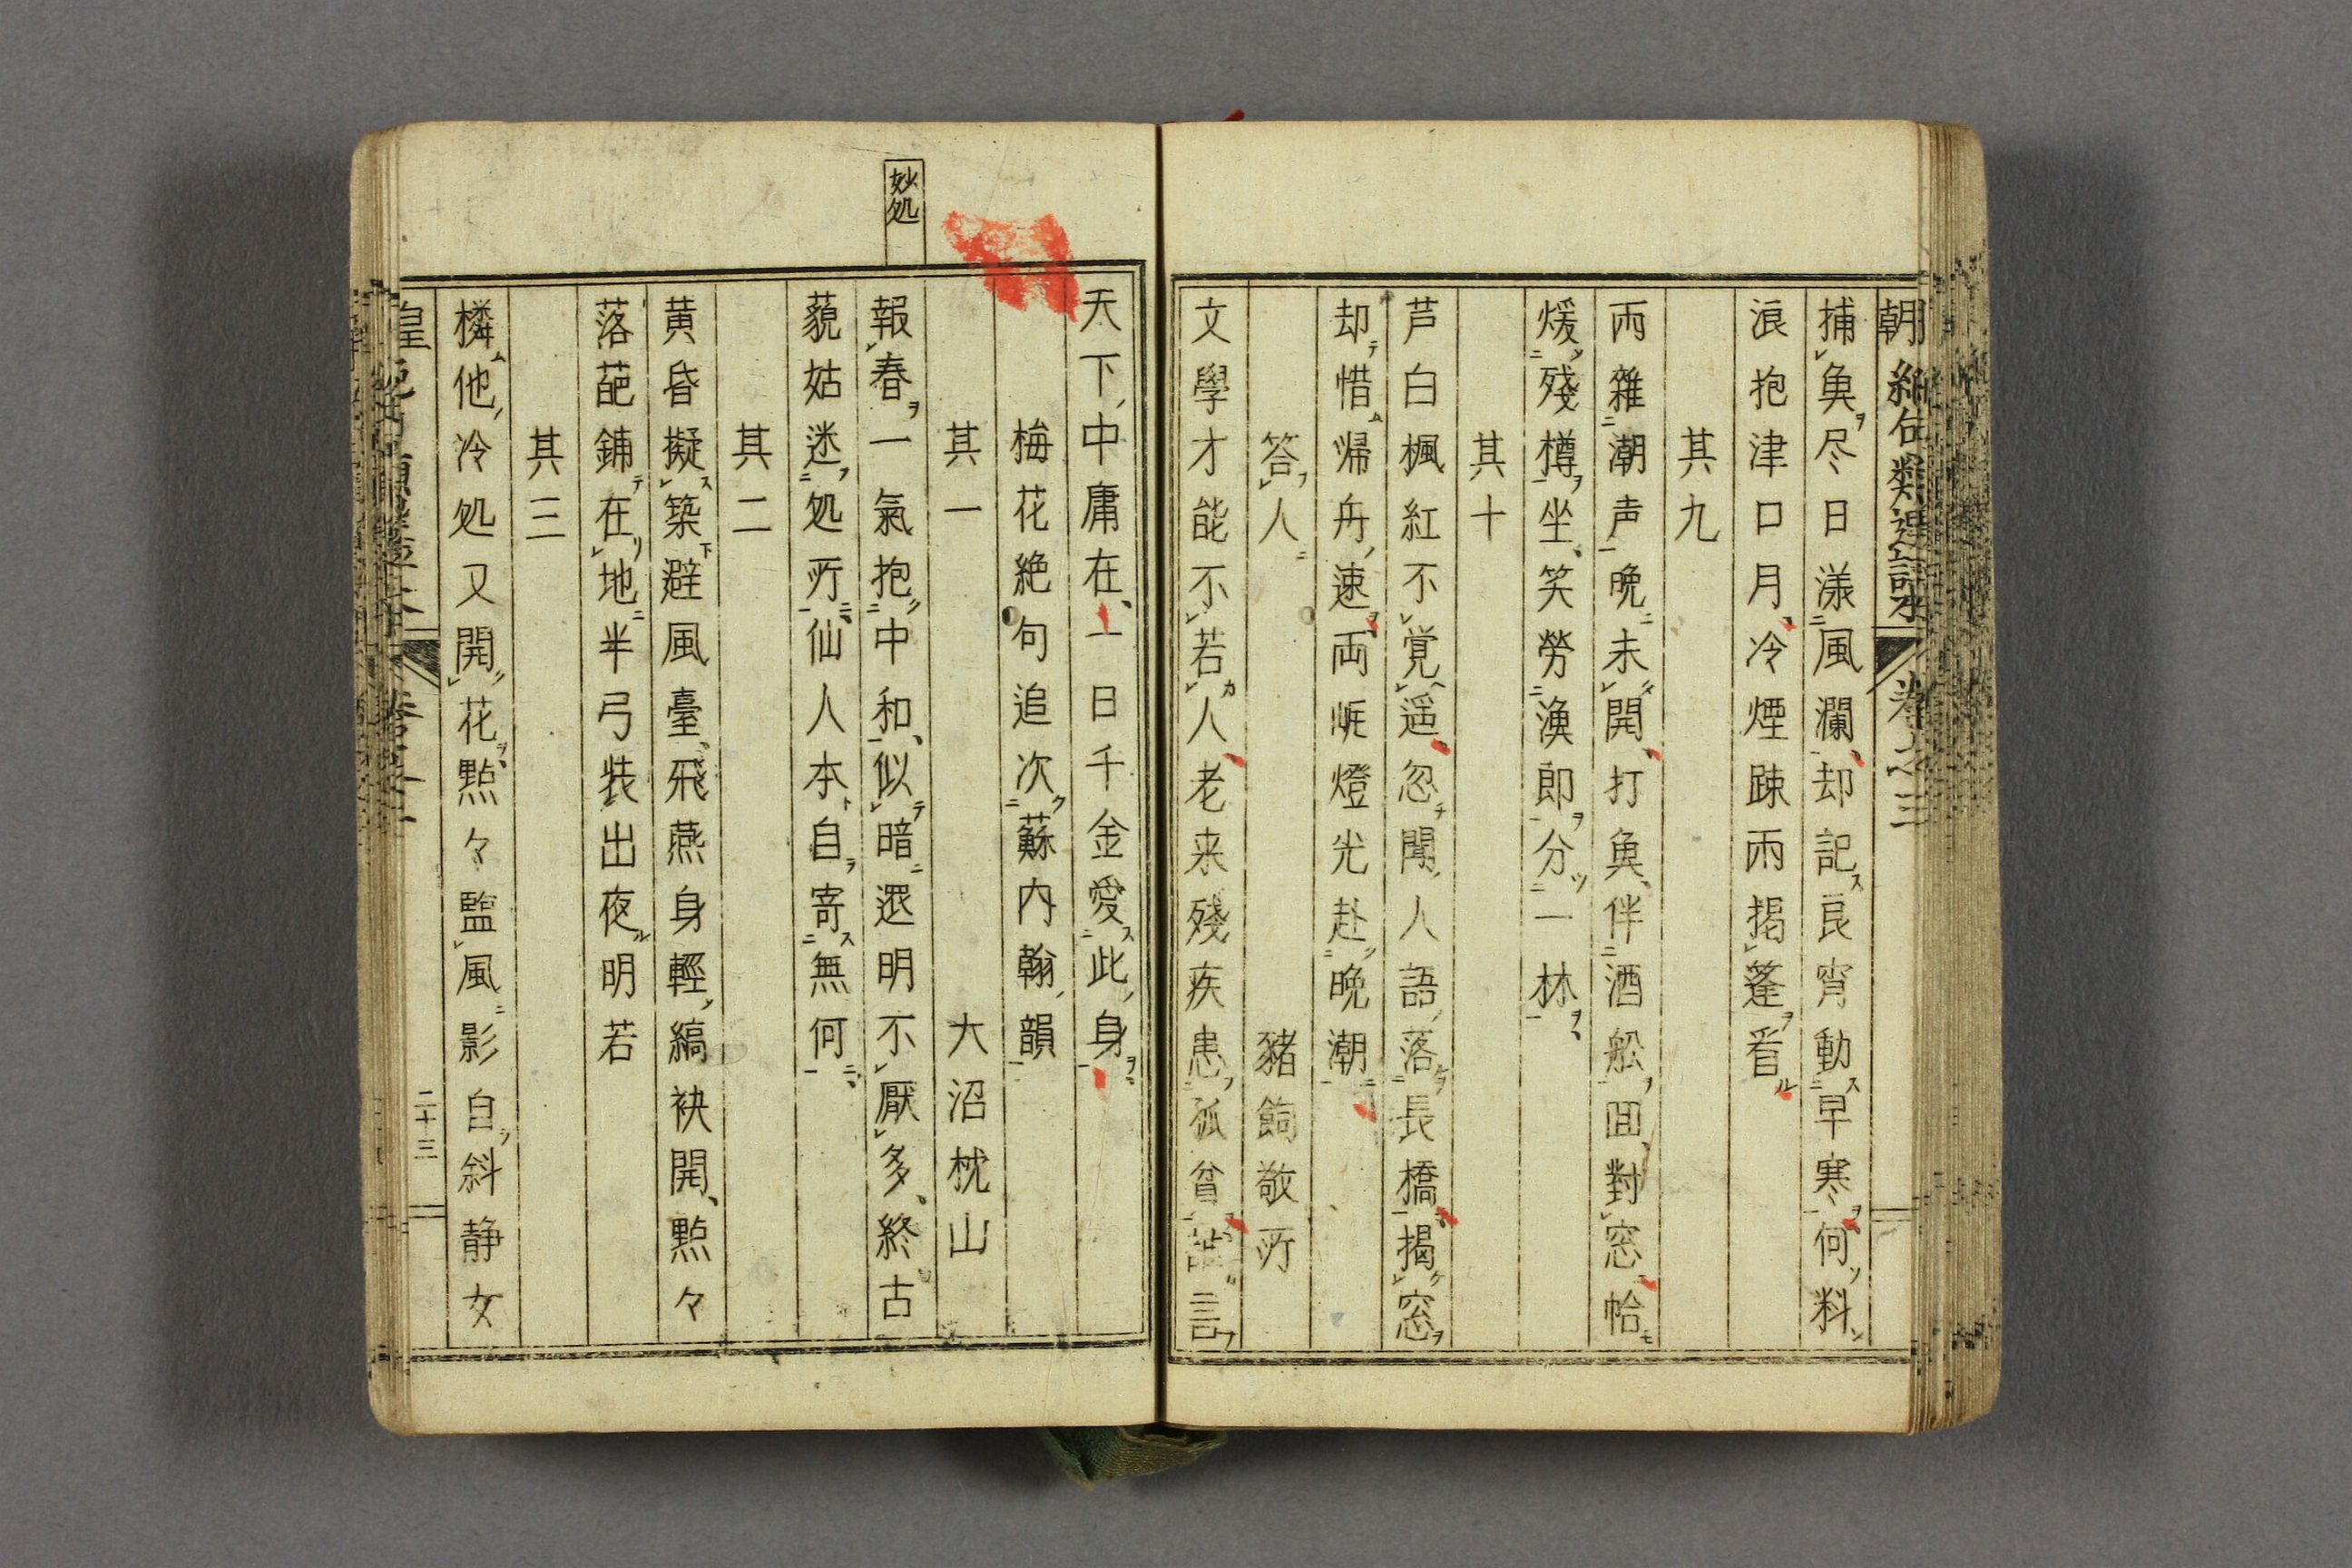 朝絶句類選評本 卷之三
捕魚尽日漾風瀾却記良宵動早寒何料
浪抱津口月冷煙疎雨掲篷看
其九
雨雜潮声晩未開打魚伴酒舩回對窓恰
煖残樽坐笑勞漁郎分一林
其十
芦白楓紅不覚遥忽聞人語落長橋揭窓
却惜帰舟速両岐燈光赴晩潮
答人 豬飼敬所
文學才能不若人老来殘疾患孤貧 言
天下中庸在一日千金愛此身
梅花絶句追次蘇内翰韻
其一 大沼枕山
妙処
報春一氣抱中和似暗還明不厭多終古
藐姑迷処所仙人本自寄無何
其二
黄昏擬築避風臺飛燕身輕縞袂開㸃々
落葩鋪在地半弓装出夜明若
其三
憐他冷処又開花㸃々監風影自斜静女
皇
二十三